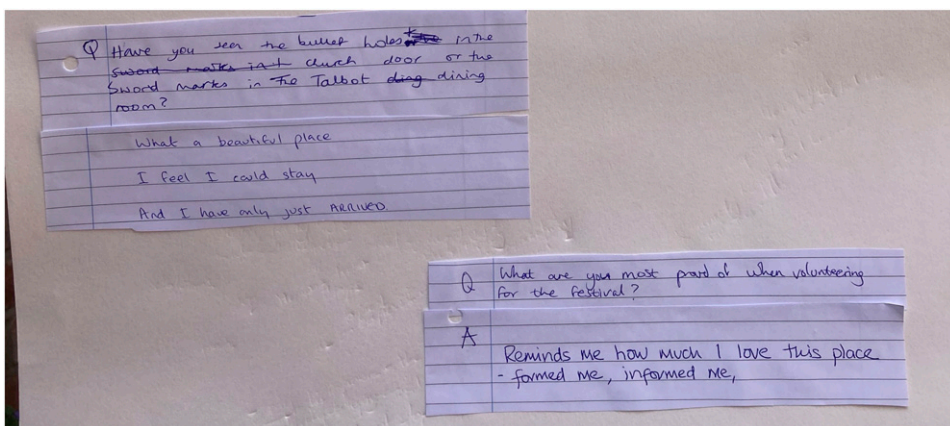 Q Have you seen the bullet holes in the
sword marks in church door or the
sword marks in The Talbot diag dining
room?
What a beautiful place
I feel I could stay
And I have only just ARRIVED.
Q What are you most proud of when volunteering
for the festival?
A
Reminds me how much I love this place
- formed me, informed me,